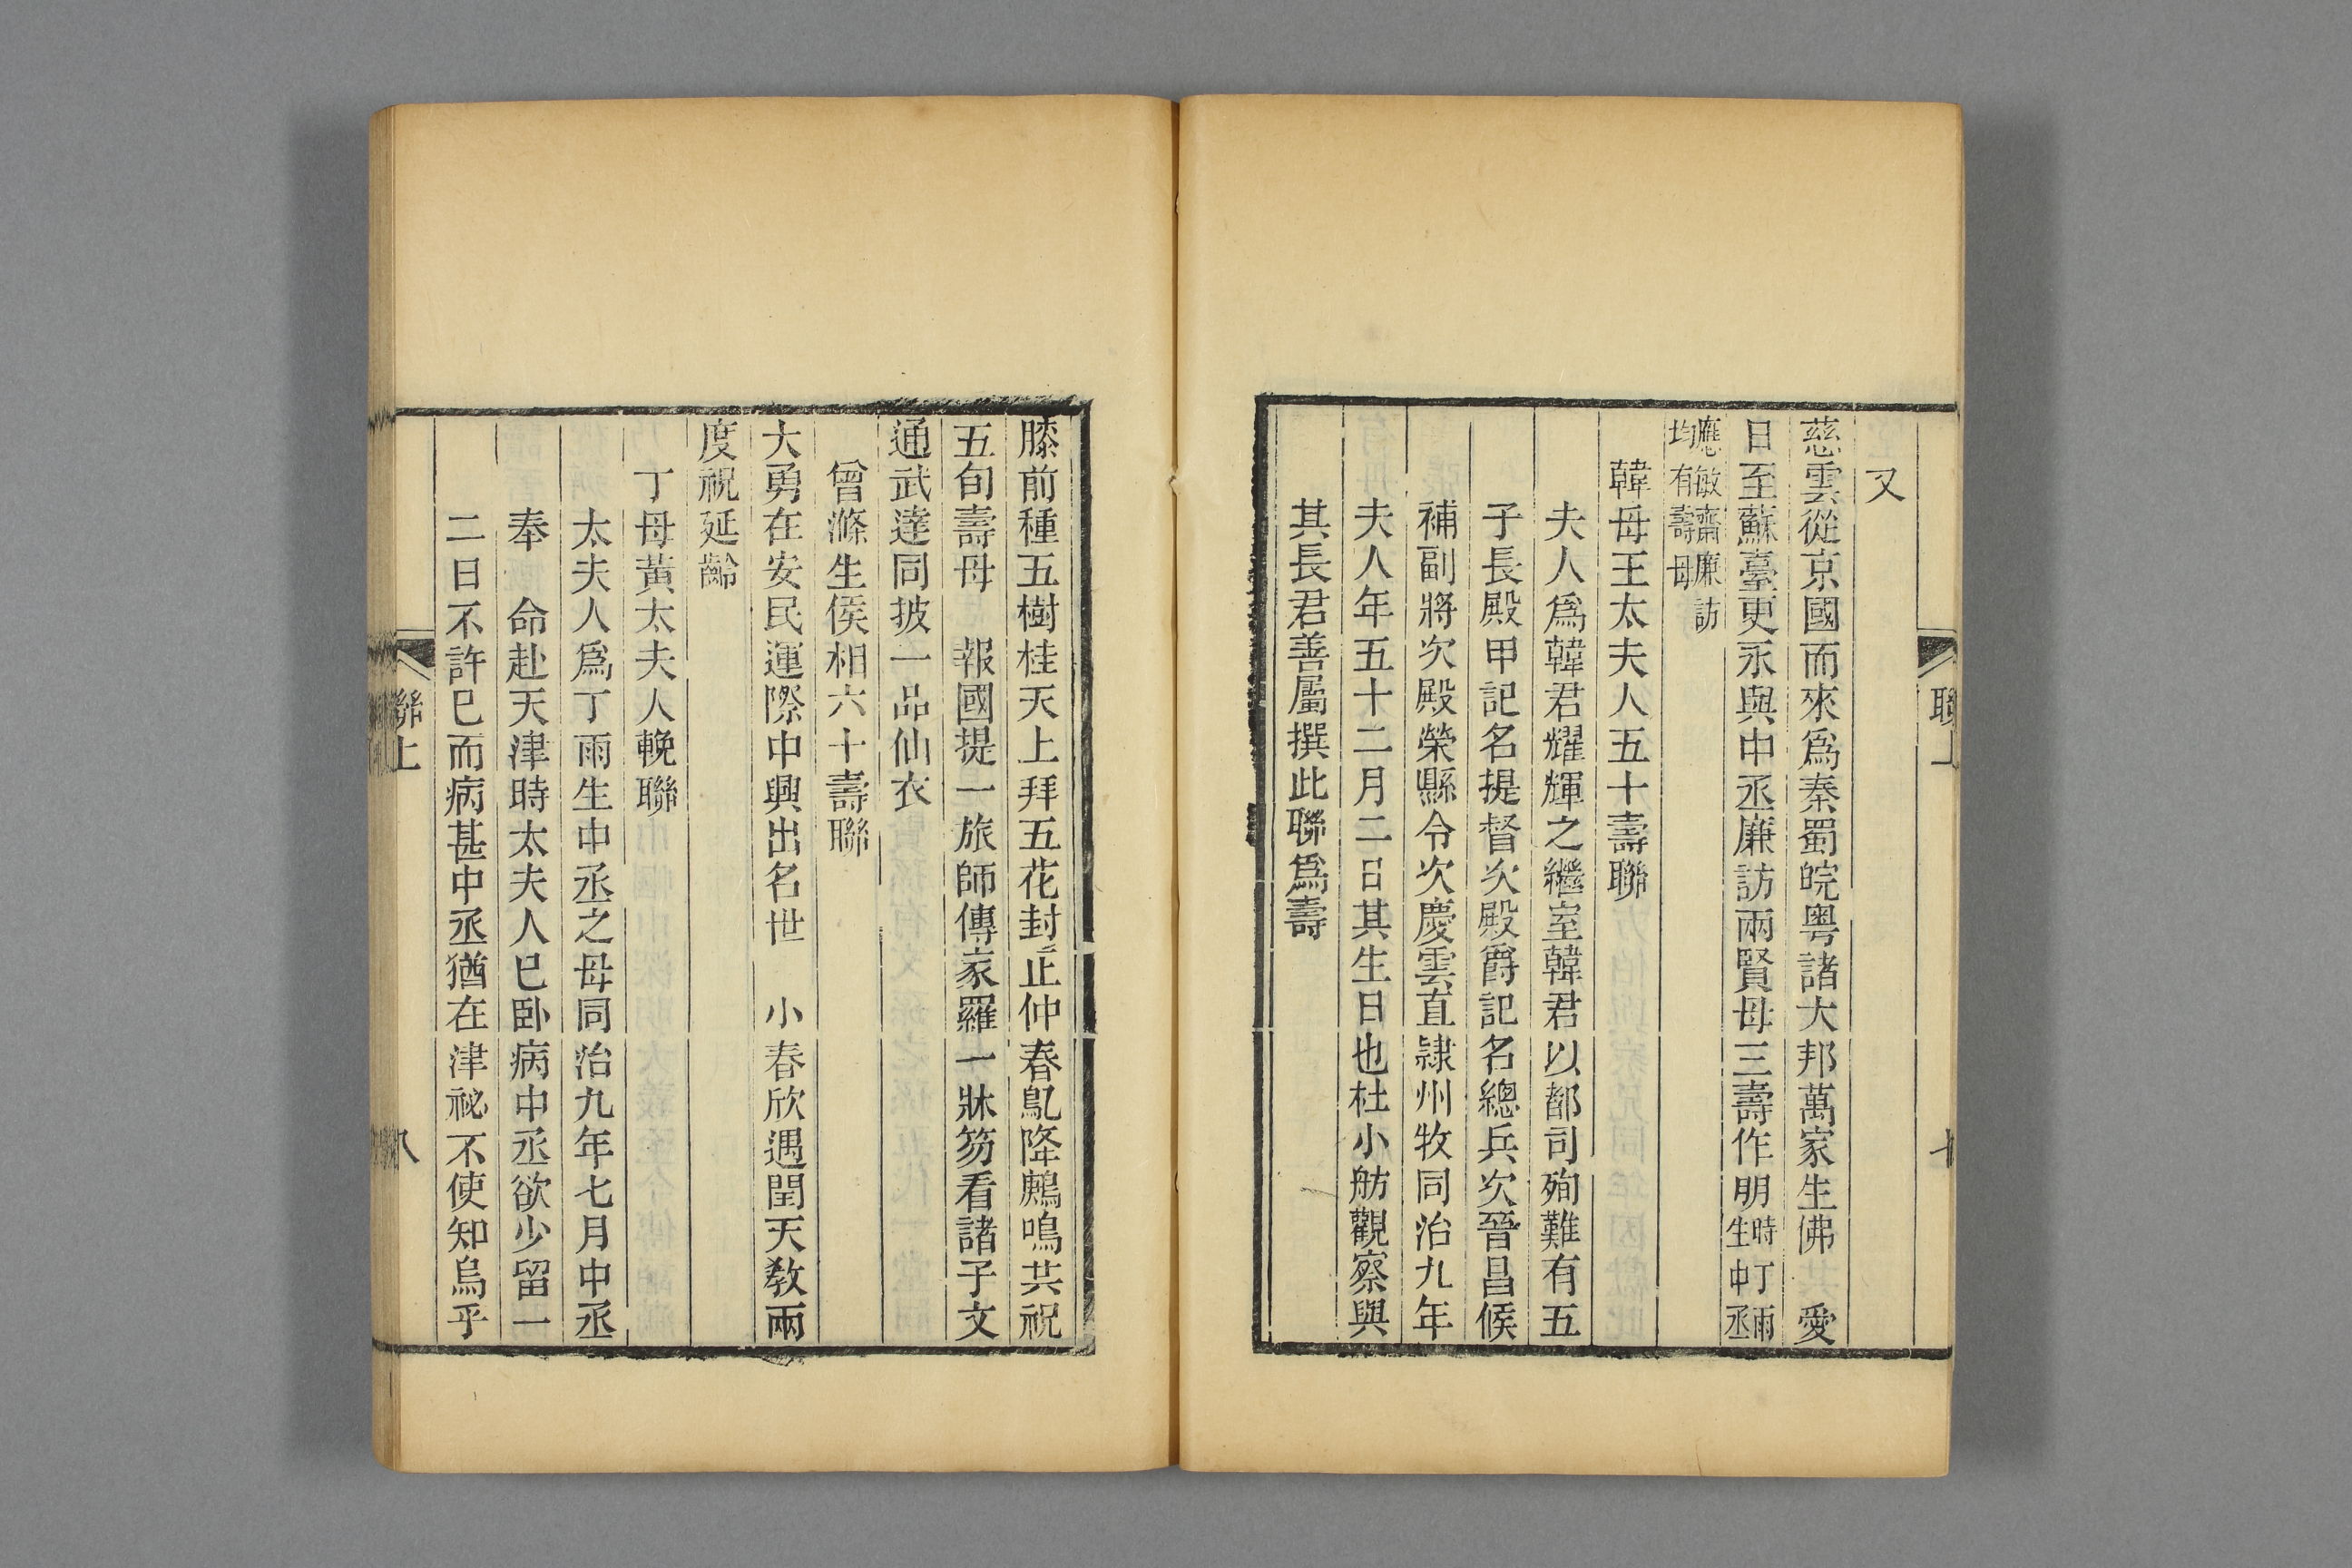 又
慈雲從京國而來爲秦蜀皖粵諸大邦萬家生佛　愛
日至蘇臺更永與中丞廉訪兩賢母三壽作朋時丁雨生中丞
應敏齋廉訪均有壽母
韓母王太夫人五十壽聯
夫人爲韓君耀輝之繼室韓君以都司殉難有五
子長殿甲記名提督次殿爵記名總兵次晉昌候
補副將次殿榮縣令次慶雲直隷州牧同治九年
夫人年五十二月二日其生日也杜小舫觀察與
其長君善屬撰此聯爲壽
聯上
膝前種五樹桂天上拜五花封止仲春鳦降鷓鳴共祝
五旬壽母　報國提一旅師傳家羅一牀笏看諸子文
通武達同披一品仙衣
曾滌生侯相六十壽聯
大勇在安民運際中興出名世　小春欣遇閏天敎兩
度祝延齡
丁母黃太夫人輓聯
太夫人爲丁雨生中丞之母同治九年七月中丞
奉　命赴天津時太夫人已卧病中丞欲少留一
二日不許已而病甚中丞猶在津祕不使知烏乎
聯上
八